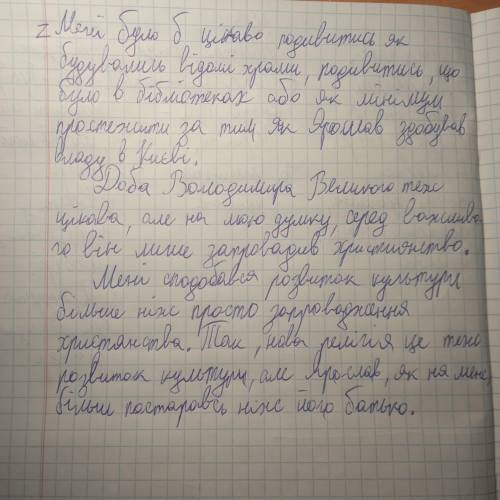 Мені було б цікаво подивитись як
будувались відомі храми, подивитись, що
було в бібліотеках або як мінімум
простежити за тим як Ярослав здобував
владу в Києві.
Доба Володимира Великого теж
цікава, але на мою думку, серед важливо
го він лише запровадив християнство.
Мені сподобався розвиток культури
більше ніж просто запровадження
християнства. Так, нова релігія це теж
розвиток культури, але Ярослав, як на мене,
більше постарався ніж його батько.